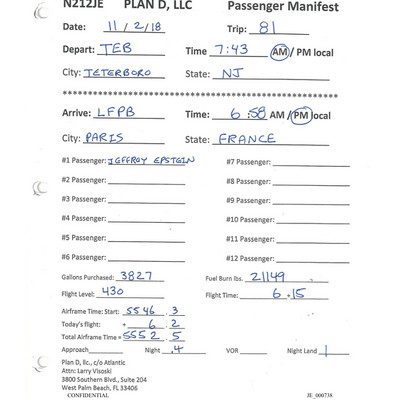 N212JE PLAN D, LLC Passenger Manifest
Date: 11/2/18 Trip: 81
Depart: TEB Time 7:43 AM / PM local
City: TETERBORO State: NJ
********************************************
Arrive: LFPB Time: 6:58 AM / PM local
City: PARIS State: FRANCE
#1 Passenger: JEFFREY EPSTEIN #7 Passenger:
#2 Passenger: #8 Passenger:
#3 Passenger: #9 Passenger:
#4 Passenger: #10 Passenger:
#5 Passenger: #11 Passenger:
#6 Passenger: #12 Passenger:
Gallons Purchased: 3827 Fuel Burn lbs. 21149
Flight Level: 430 Flight Time: 6.15
Airframe Time: Start: 5546.3
Today's flight: + 6.2
Total Airframe Time = 5552.5
Approach Night .4 VOR Night Land 1
Plan D, llc., c/o Atlantic
Attn: Larry Visoski
3800 Southern Blvd., Suite 204
West Palm Beach, FL 33406
CONFIDENTIAL JE_000738